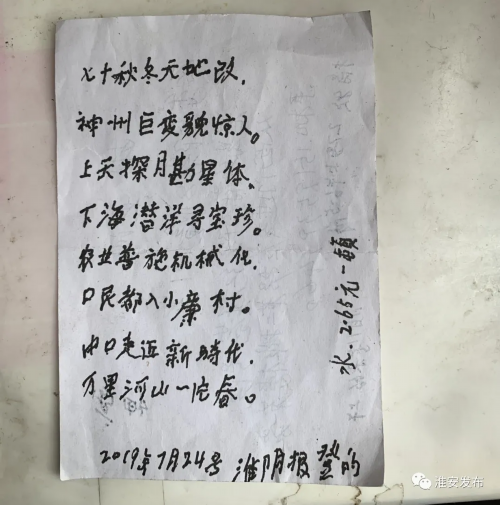 七十秋冬天地改,
神州巨变貌惊人。
上天探月勘星体,
下海潜洋寻宝珍。
农业普施机械化,
口民都入小康村。
中口走近新時代,
万里河山一片春。
水.2.65元一顿
2019年7月24号 淮阴报登的
淮安发布